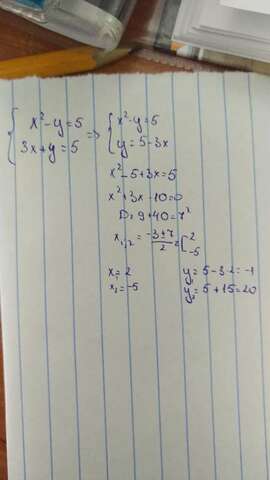 { x² - y = 5 => { x² - y = 5
{ 3x + y = 5 { y = 5 - 3x
x² - 5 + 3x = 5
x² + 3x - 10 = 0
D = 9 + 40 = 7²
x₁,₂ = (-3 ± 7)/2 = [ 2
-5
x₁ = 2 y₁ = 5 - 3·2 = -1
x₂ = -5 y₂ = 5 + 15 = 20